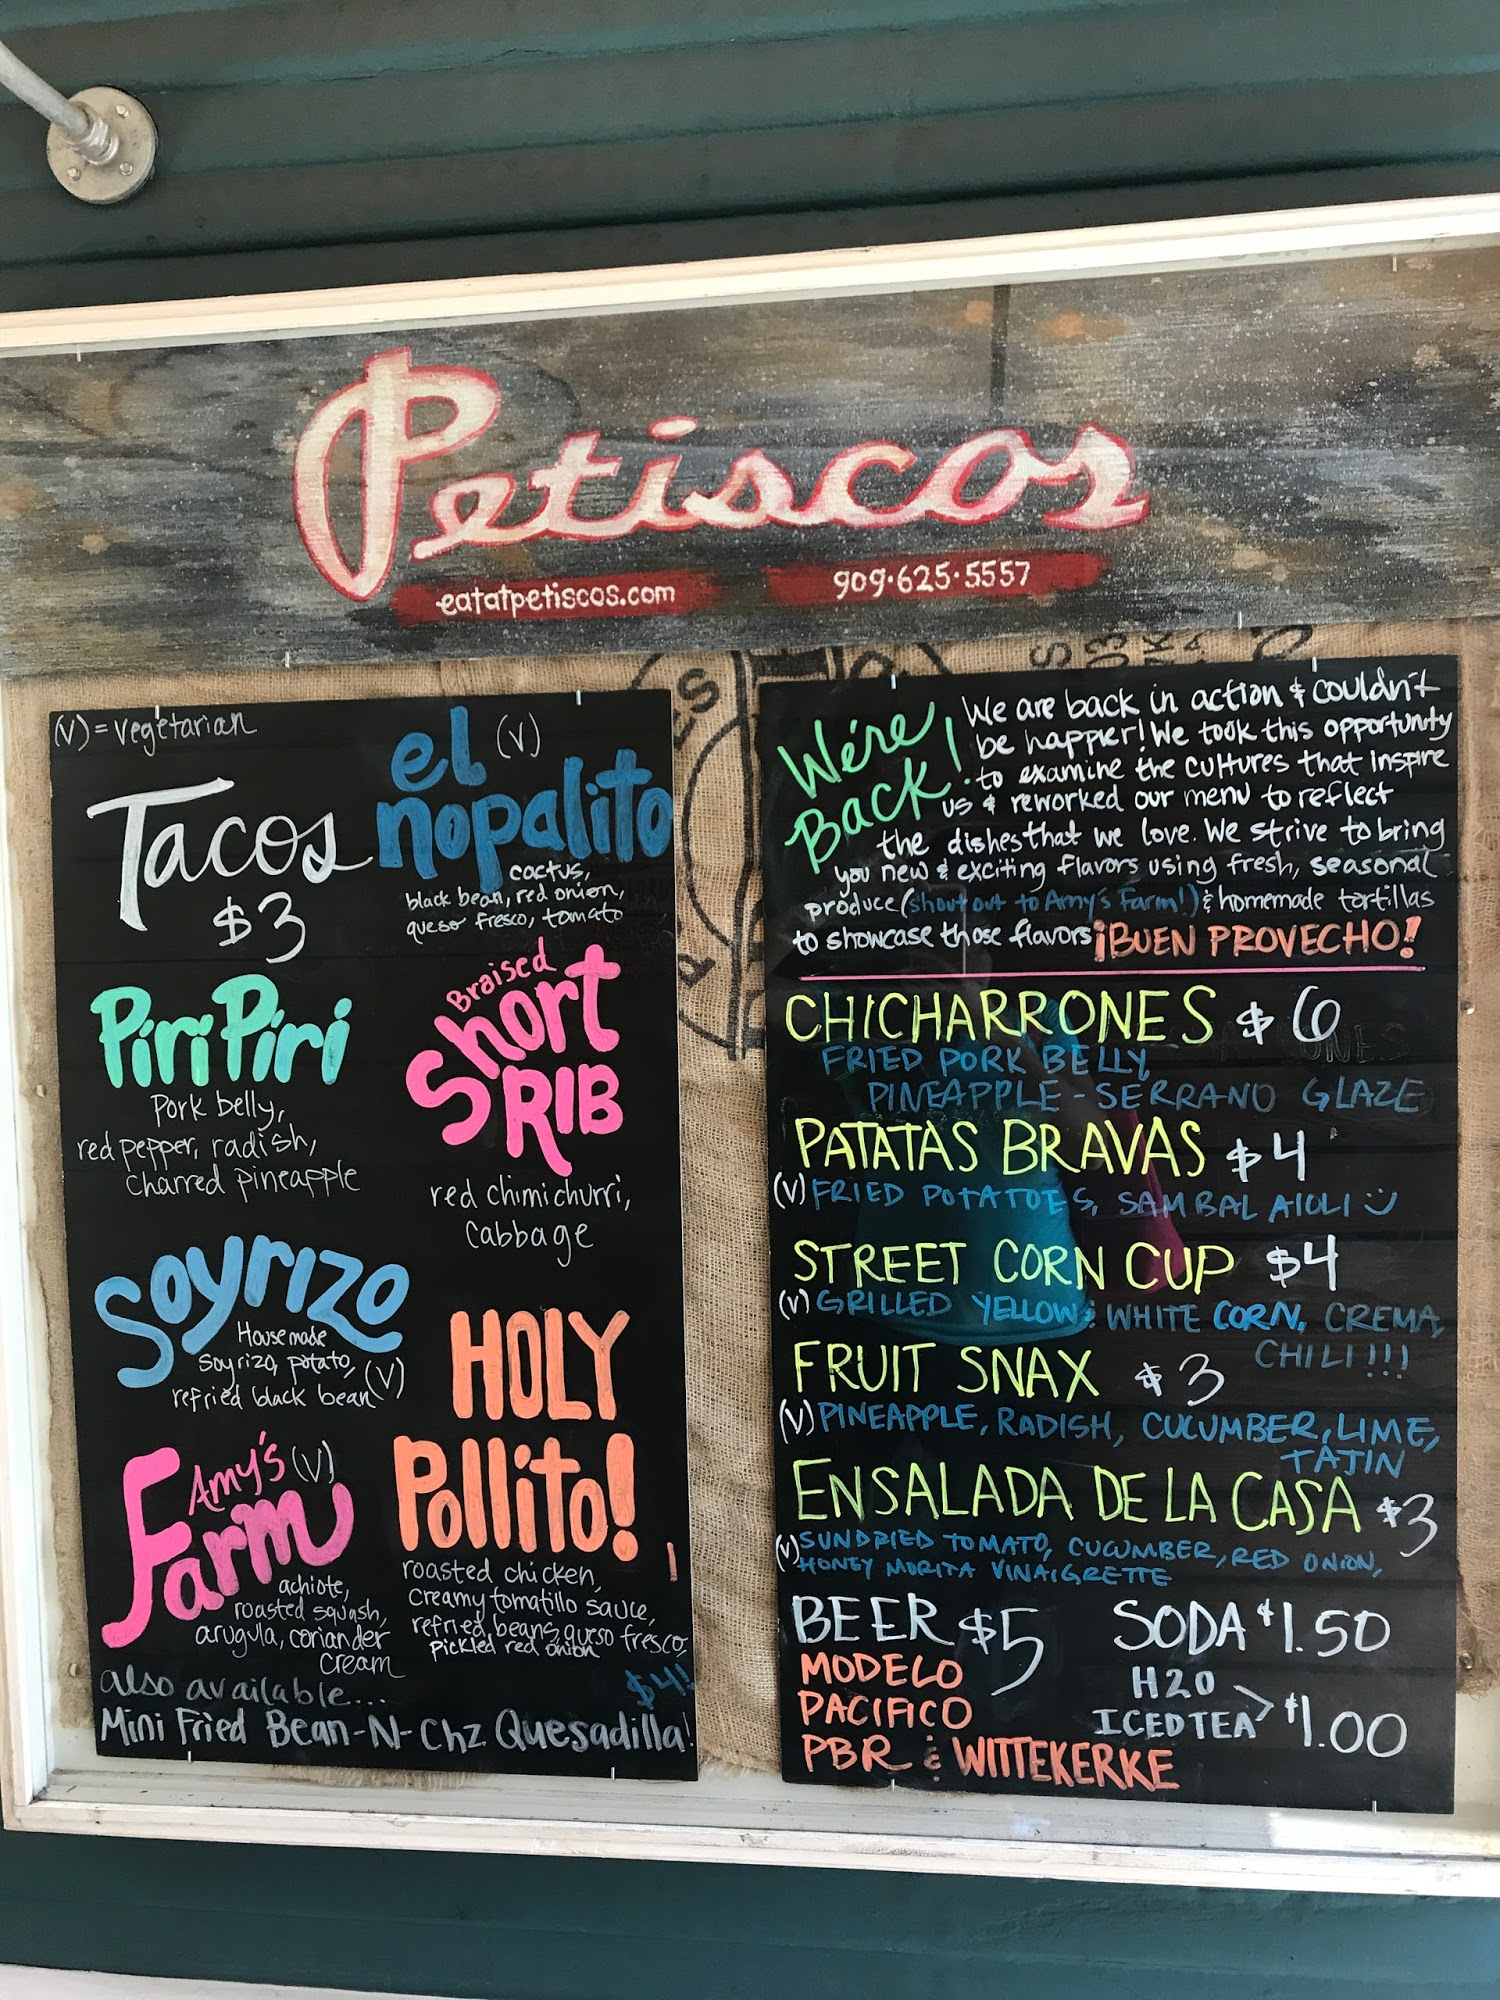 Petiscos
eatatpetiscos.com
909·625·5557
(v) = vegetarian
Tacos
$3
el (v)
nopalito
cactus,
black bean, red onion,
queso fresco, tomato
Piri Piri
Pork belly,
red pepper, radish,
Charred pineapple
Braised
Short
RIB
red chimichurri,
Cabbage
Soyrizo
House made
Soyrizo, potato,
refried black bean (V)
HOLY
Pollito!
roasted chicken,
Creamy tomatillo sauce,
refried beans, queso fresco,
pickled red onion
Amy's (V)
Farm
achiote,
roasted squash,
arugula, coriander
cream
also available...
$4!
Mini Fried Bean-N-Chz Quesadilla!
We're
Back!
We are back in action & couldn't
be happier! We took this opportunity
to examine the cultures that inspire
us & reworked our menu to reflect
the dishes that we love. We strive to bring
you new & exciting flavors using fresh, seasonal
produce (shout out to Amy's Farm!) & homemade tortillas
to showcase those flavors ¡BUEN PROVECHO!
CHICHARRONES $6
FRIED PORK BELLY,
PINEAPPLE-SERRANO GLAZE
PATATAS BRAVAS $4
(V) FRIED POTATOES, SAMBAL AIOLI
STREET CORN CUP $4
(V) GRILLED YELLOW & WHITE CORN, CREMA,
CHILI!!!
FRUIT SNAX $3
(V) PINEAPPLE, RADISH, CUCUMBER, LIME,
TAJIN
ENSALADA DE LA CASA $3
(V) SUNDRIED TOMATO, CUCUMBER, RED ONION,
HONEY MORITA VINAIGRETTE
BEER $5
MODELO
PACIFICO
PBR & WITTEKERKE
SODA $1.50
H20
ICED TEA > $1.00